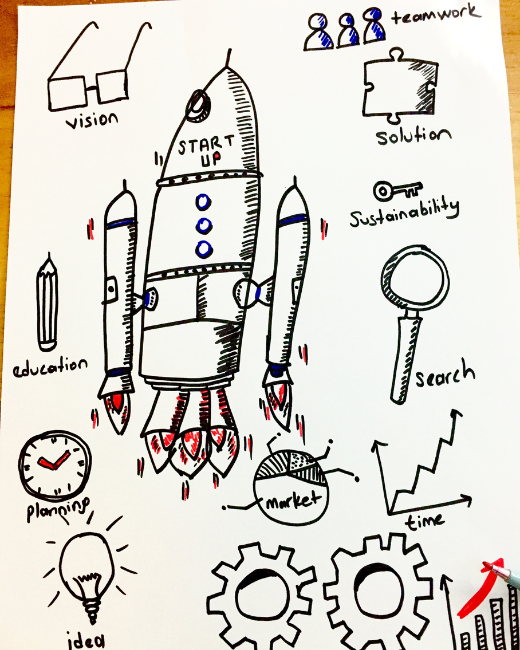 teamwork
vision
START
UP
solution
Sustainability
education
Search
planning
market
time
idea